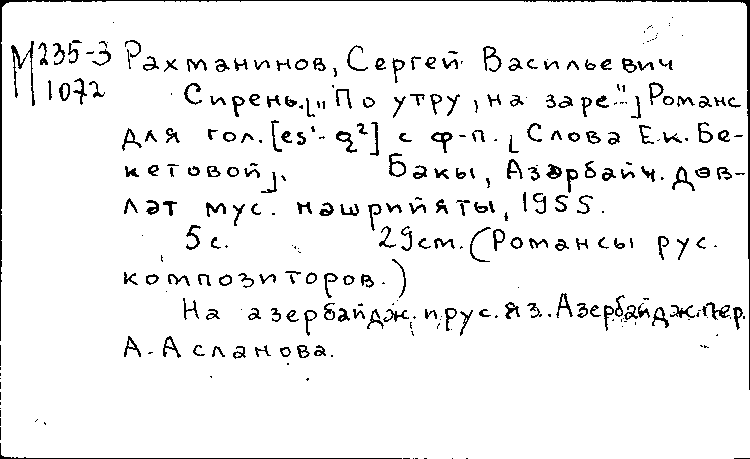 М 235-3 Рахманинов, Сергей Васильевич
1072 Сирень. ["По утру, на заре..."] Романс
для гол. [es¹-g²] с ф-п. [Слова Ек. Бе-
кетовой]. Бакы, Азәрбайҹ. дөв-
ләт мус. нәшрийяты, 1955.
5 с. 29cm. (Романсы рус.
композиторов.)
На азербайдж. и рус. яз. Азербайдж. пер.
А. Асланова.